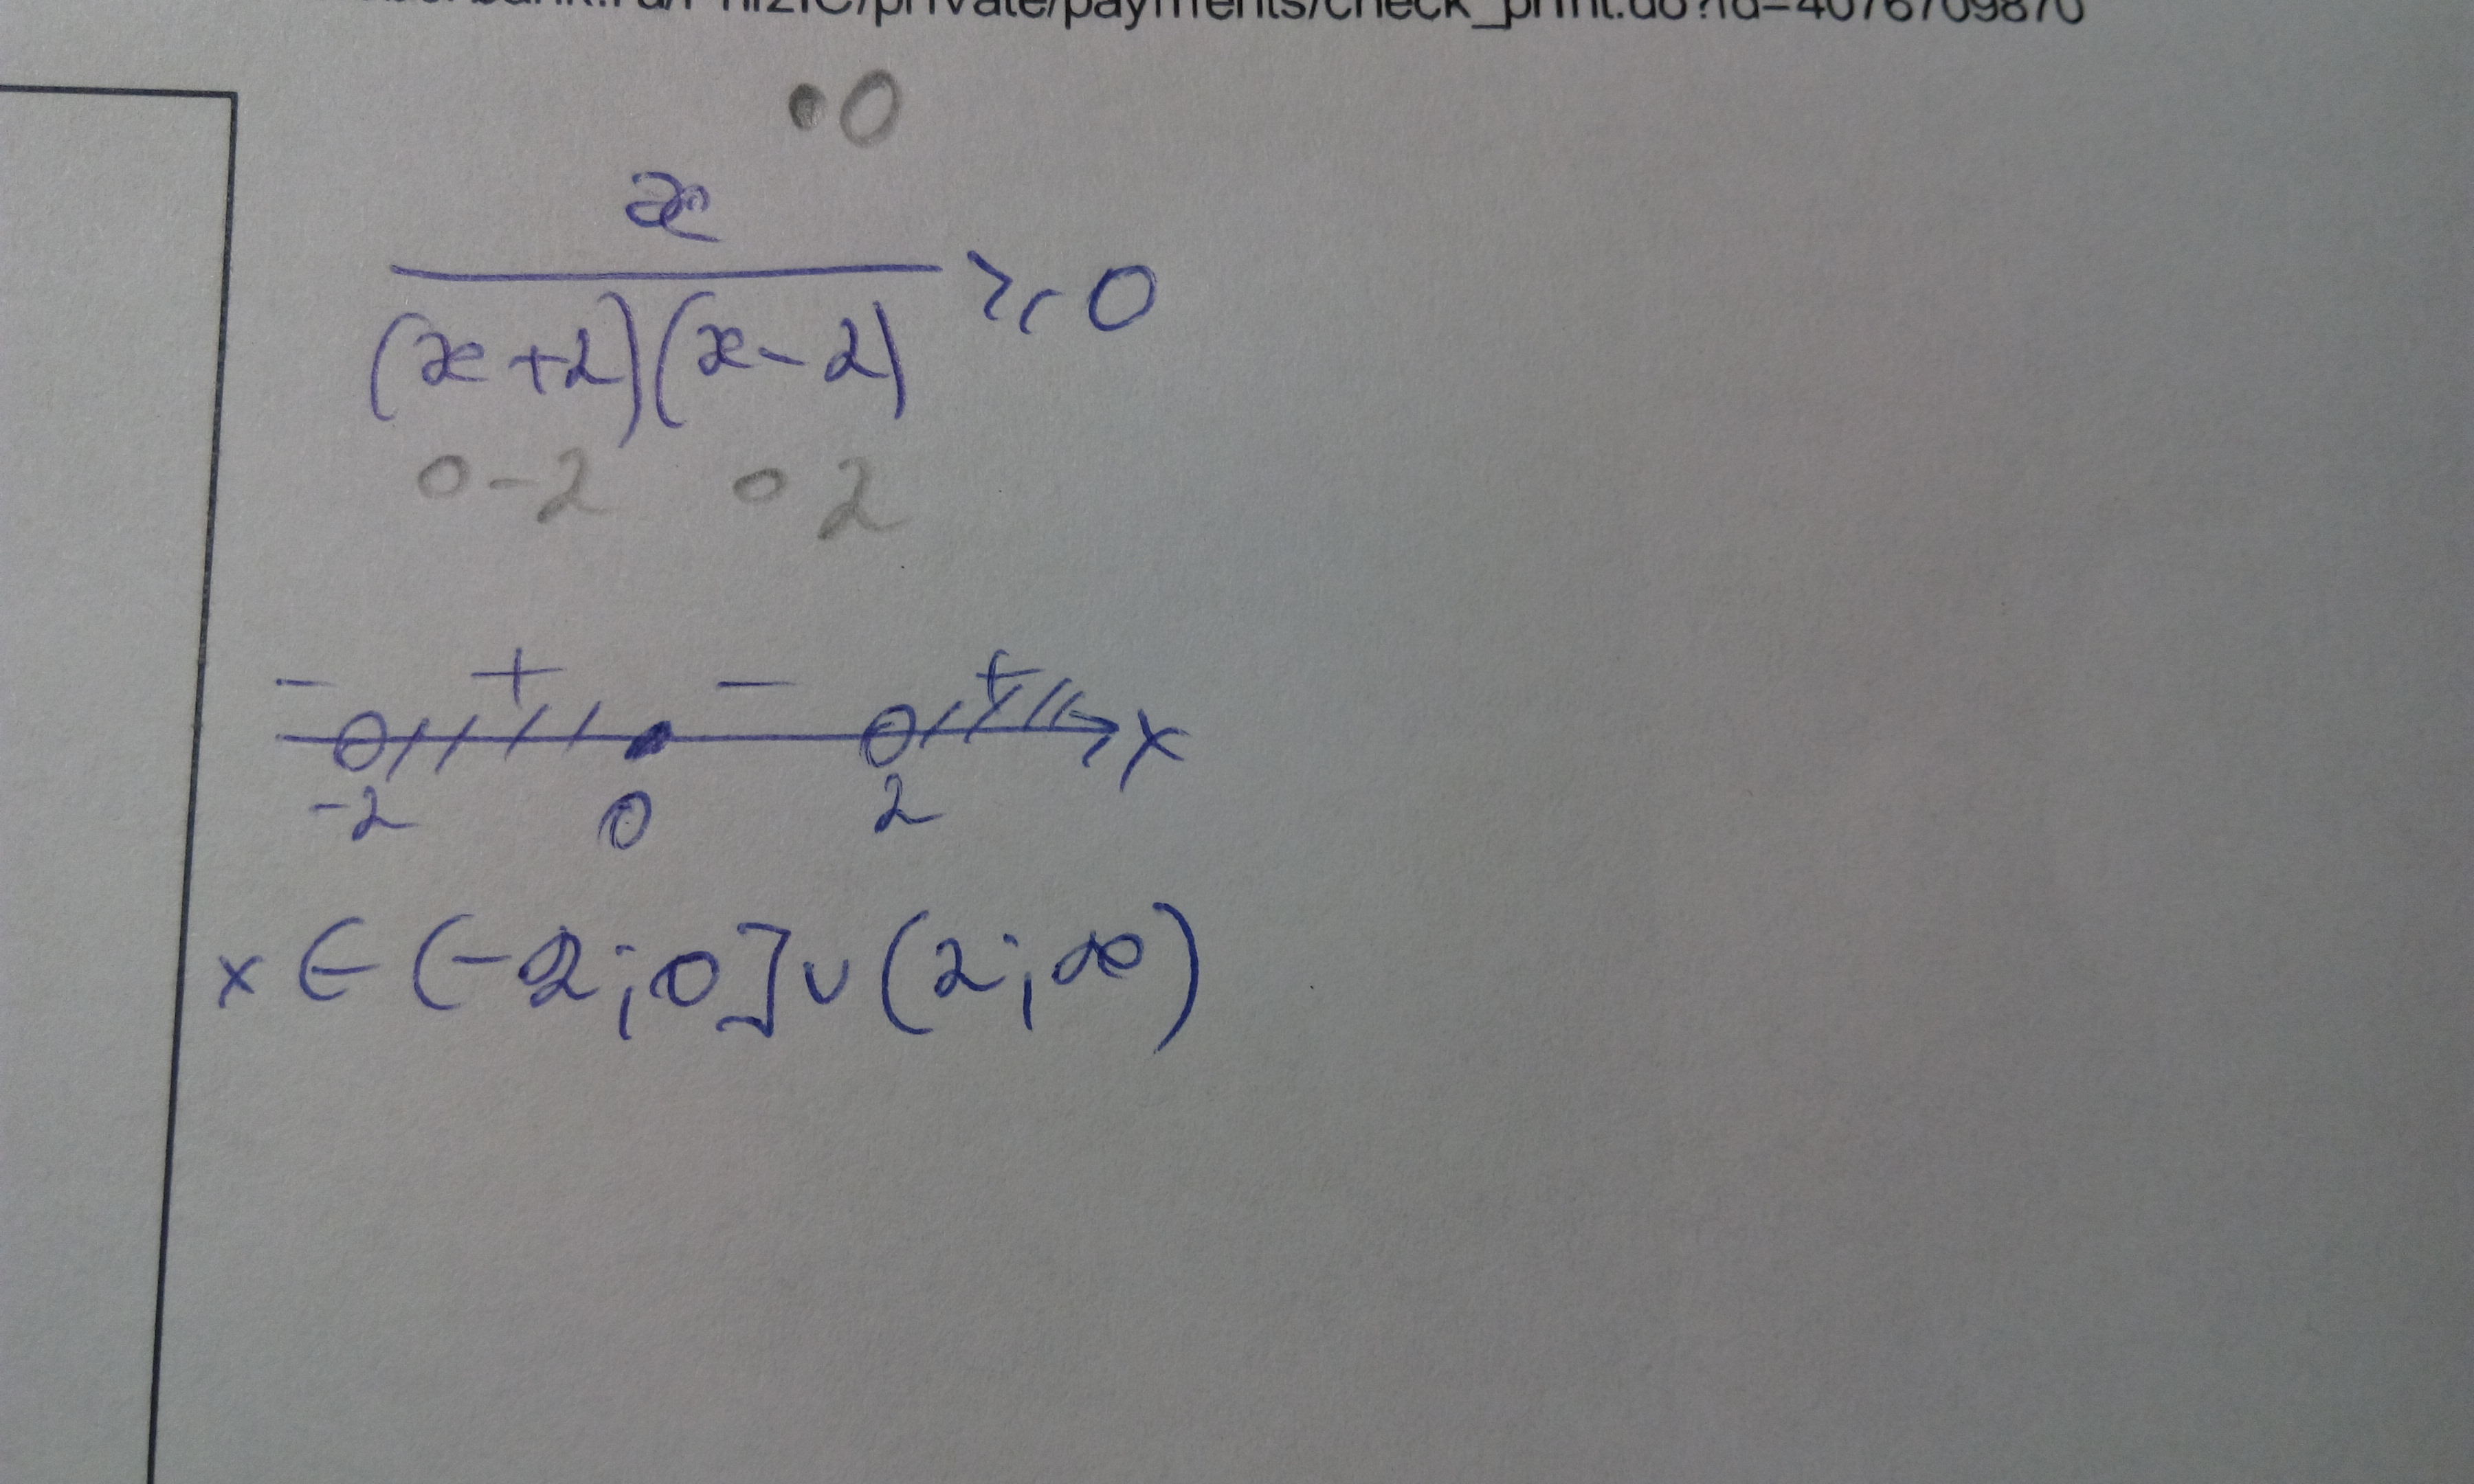 /private/payments/check_print.do?id=4076709870
•0
x
(x+2)(x-2) ≥ 0
○-2 ○2
- + - +
-2 0 2 x
x ∈ (-2;0]∪(2;∞)